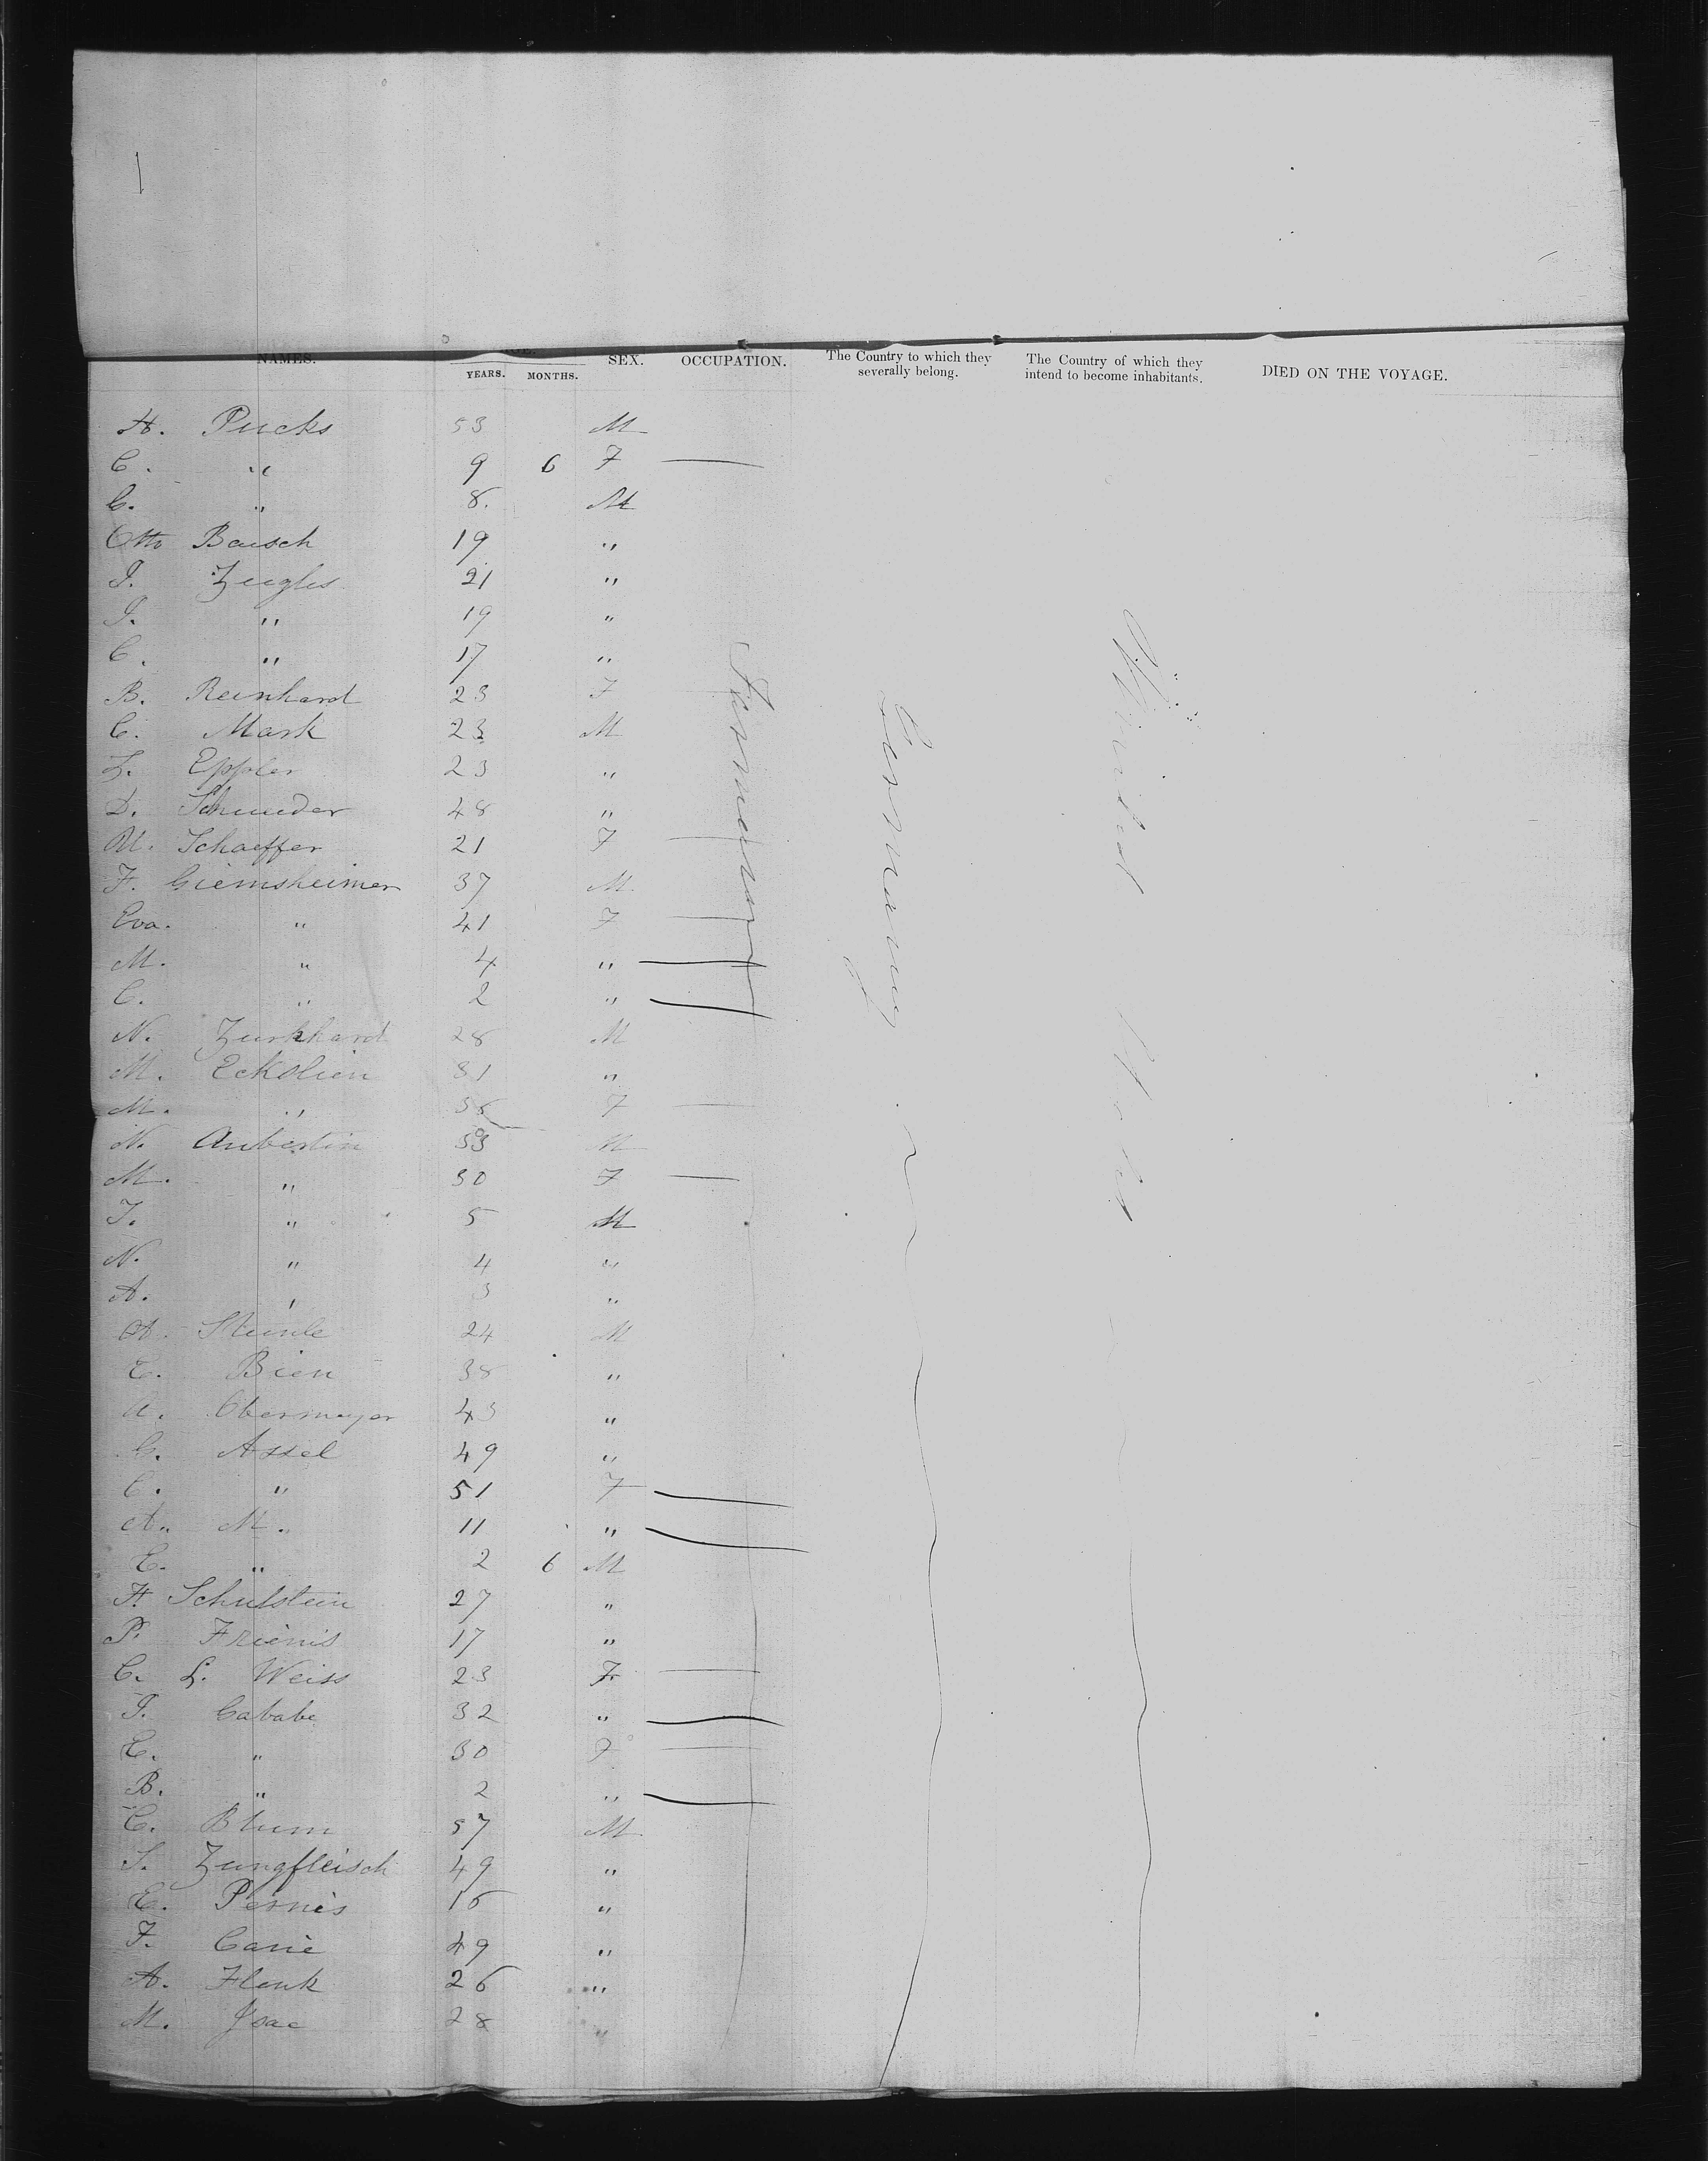 NAMES. AGE. SEX. OCCUPATION. The Country to which they severally belong. The Country of which they intend to become inhabitants. DIED ON THE VOYAGE.
YEARS. MONTHS.
H. Pucks 53 M
C. " 9 6 F —
C. " 8. M
Otto Bausch 19 "
J. Zeegles 21 "
J. " 19 "
C. " 17 "
B. Reinhard 23 F —
C. Mark 23 M
Z. Eppler 23 "
D. Schneider 48 "
M. Schaeffer 21 F —
F. Giemsheimer 37 M
Eva. " 41 F —
M. " 4 " —
C. " 2 " —
N. Zurkhard 28 M
M. Eckolien 31 "
M. " 36 F —
N. Aubertin 33 M
M. " 30 F —
J. " 5 M
N. " 4 "
A. " 3 "
A. Steinle 24 M
E. Bien 38 "
A. Obermeyer 43 "
G. Assel 49 "
C. " 51 F —
A. M. 11 " —
E. " 2 6 M
H. Schulstein 27 "
P. Frienis 17 "
C. L. Weiss 23 F —
J. Cababe 32 " —
E. " 30 F —
B. " 2 " —
C. Blum 57 M
S. Zungfleisch 49 "
E. Pernis 16 "
F. Carie 49 "
A. Flenk 26 "
M. Isac 28 "
Germany
United States